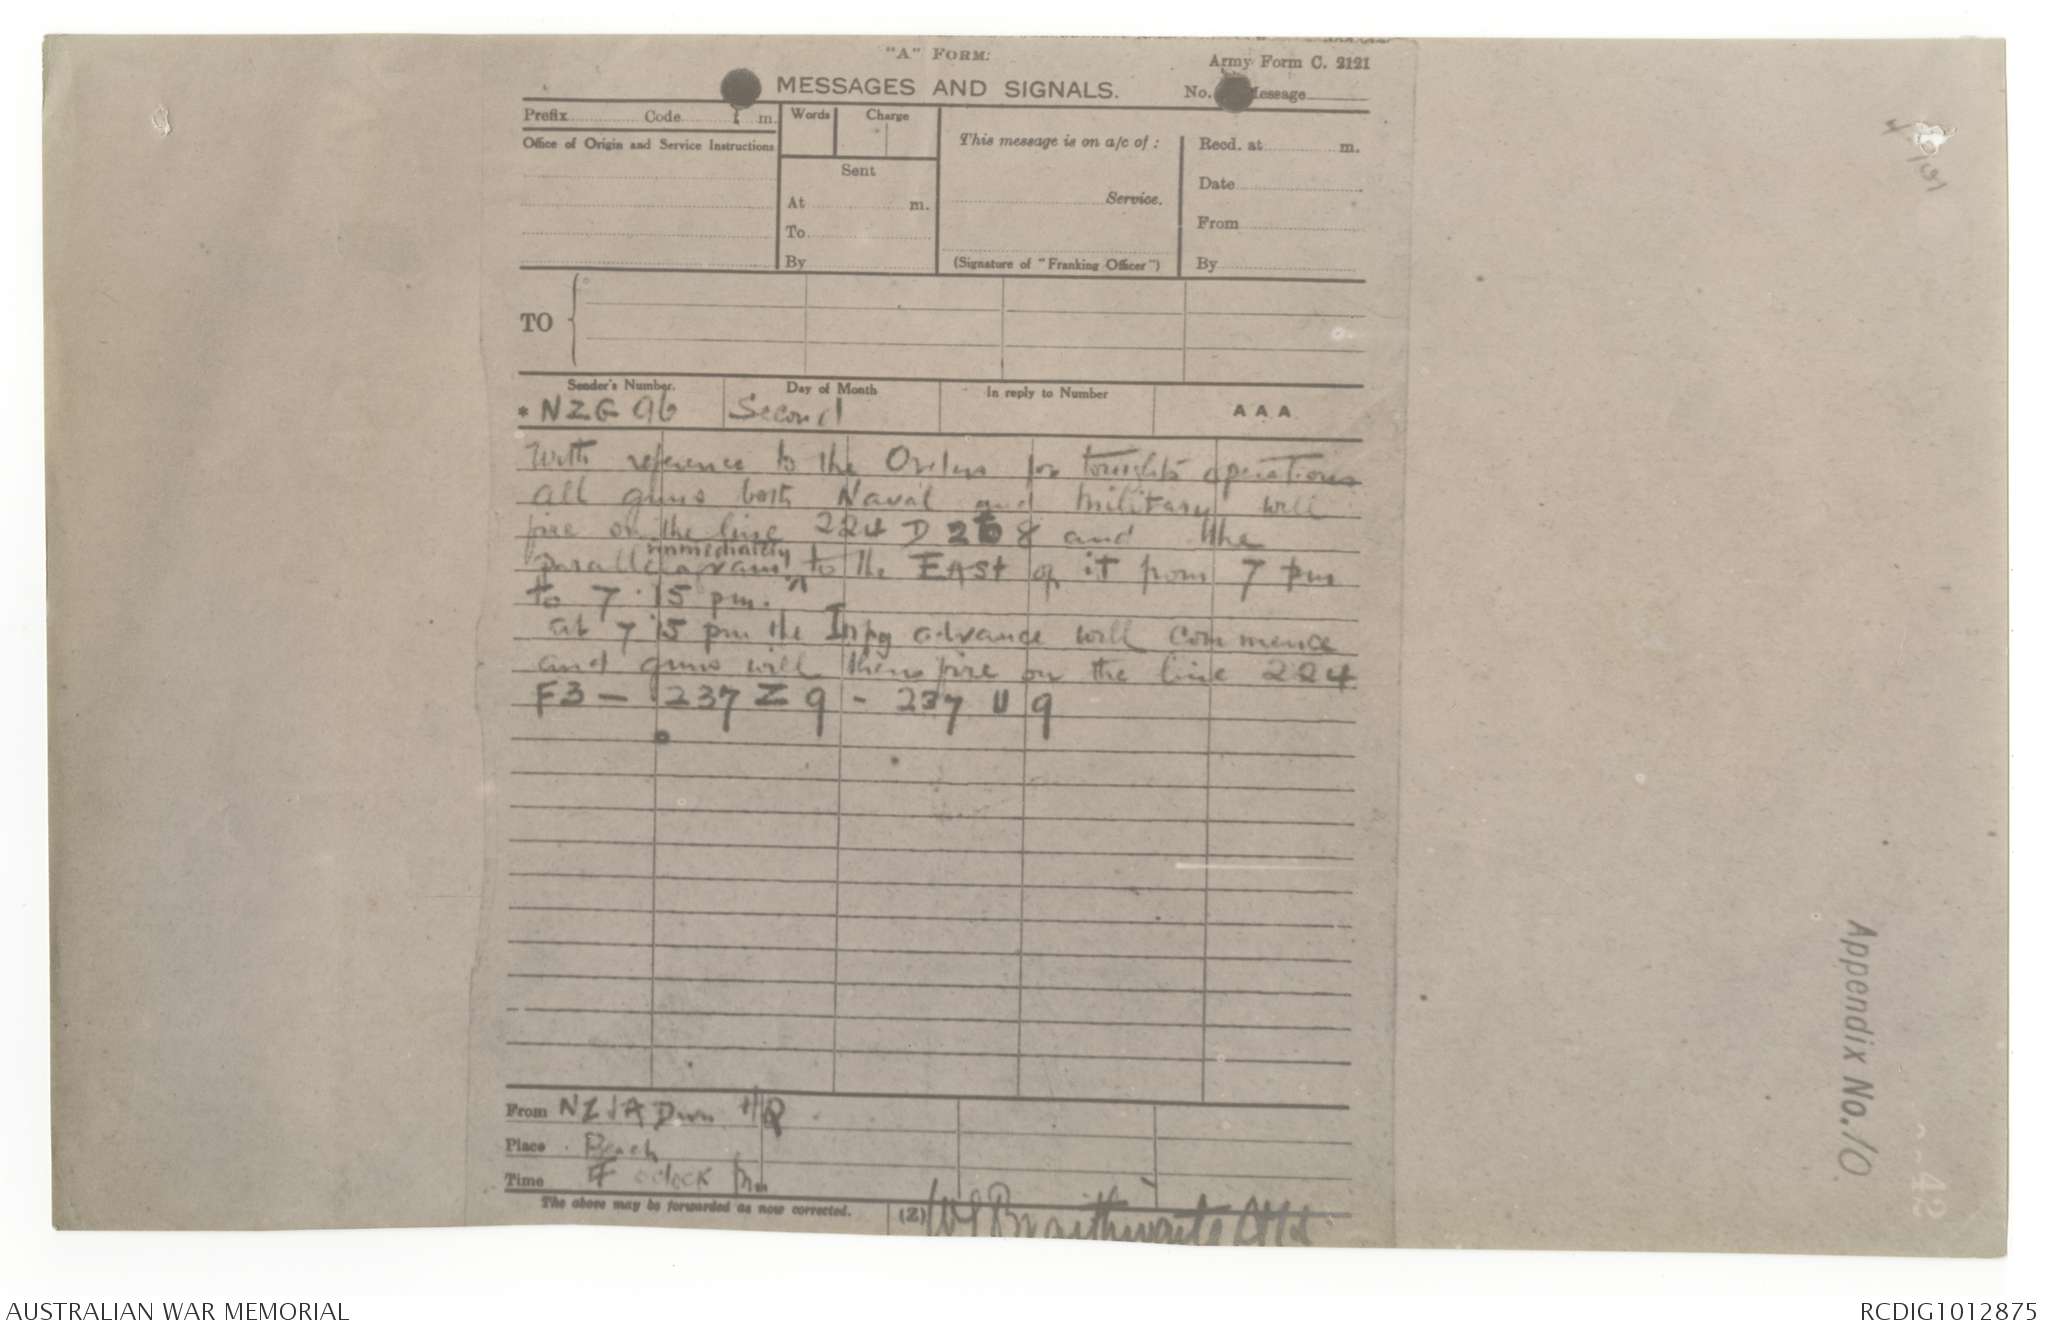 "A" FORM.
Army Form C. 2121
MESSAGES AND SIGNALS.
No. Message
Prefix Code m.
Words Charge
This message is on a/c of :
Recd. at m.
Office of Origin and Service Instructions
Sent
Date
At m.
Service.
From
To
By
(Signature of "Franking Officer")
By
TO
Sender's Number.
Day of Month
In reply to Number
AAA
* NZG 96
Second
With reference to the Orders for tonight's operations
all guns both Naval and Military will
fire on the line 224 D 8 and the
immediately
parallelogram to the EAST of it from 7 pm
to 7.15 pm.
at 7.15 pm the advance will commence
and guns will fire on the line 224
F3 - 237 Z 9 - 237 U 9
From NZ & A Divn HQ
Place Beach
Time oclock pm
The above may be forwarded as now corrected.
(Z) W G Braithwaite
Appendix No. 10
42
AUSTRALIAN WAR MEMORIAL
RCDIG1012875